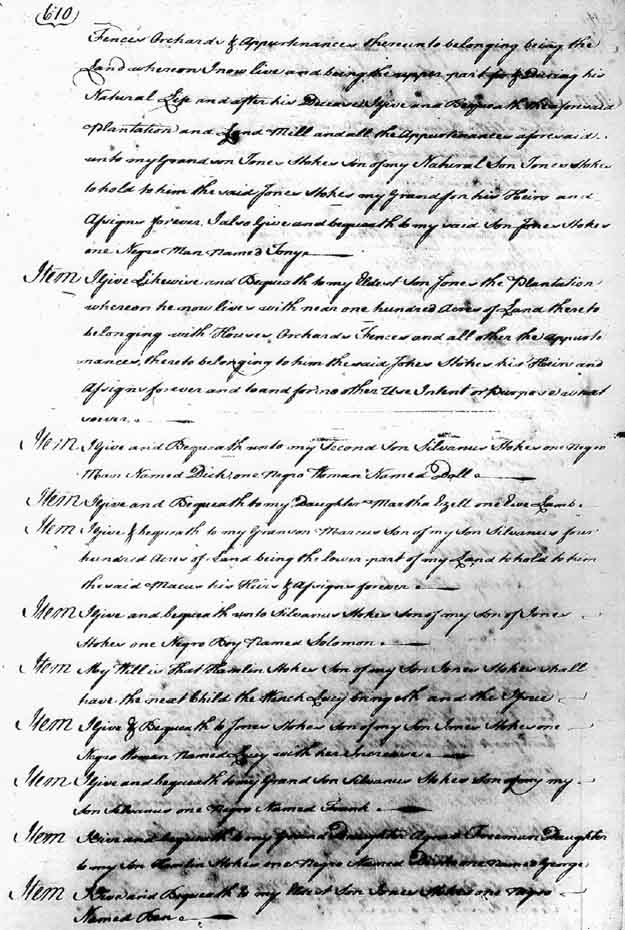 610
Fences Orchards & Appurtenances thereunto belonging being the
Land whereon I now live and being the upper part for & During his
Natural Life and after his Decease I give and Bequeath the aforesaid
Plantation and Land Mill and all the Appurtenances aforesaid
unto my Grandson Jones Stokes Son of my Natural Son Jones Stokes
to hold to him the said Jones Stokes my Grandson his Heirs and
Assigns forever. I also Give and bequeath to my said Son Jones Stokes
one Negro Man Named Tony
Item I Give Likewise and Bequeath to my Eldest Son Jones the Plantation
whereon he now lives with near one hundred Acres of Land thereto
belonging with Houses Orchards Fences and all other the appurte
nances, thereto belonging to him the said Jones Stokes his Heirs and
Assigns forever and to and for no other Use Intent or purpose what
soever
Item I Give and Bequeath unto my Second Son Silvanus Stokes one Negro
Man Named Dick, one Negro Woman Named Doll
Item I give and Bequeath to my Daughter Martha Ezell one Ewe Lamb
Item I give & bequeath to my Granson Marcus Son of my Son Silvanus four
hundred Acres of Land being the lower part of my Land to hold to him
the said Macus his Heirs & Assigns forever
Item I Give and bequeath unto Silvanus Stokes Son of my Son of Jones
Stokes one Negro Boy Named Solomon
Item My Will is that Hamlin Stokes Son of my Son Jones Stokes shall
have the next Child the Wench Lucy brings forth and the
Item I Give & Bequeath to Jones Stokes Son of my Son Jones Stokes one
Negro Woman Named Lucy with her Increase
Item I Give and bequeath to my Grand Son Silvanus Stokes Son of my my
Son Silvanus one Negro Named Frank
Item I Give and bequeath to my Grand Daughter Agnes Freeman Daughter
to my Son Hamlin Stokes one Negro Named one named George
Item I Give and Bequeath to my Eldest Son Jones Stokes one Negro
Named Ben